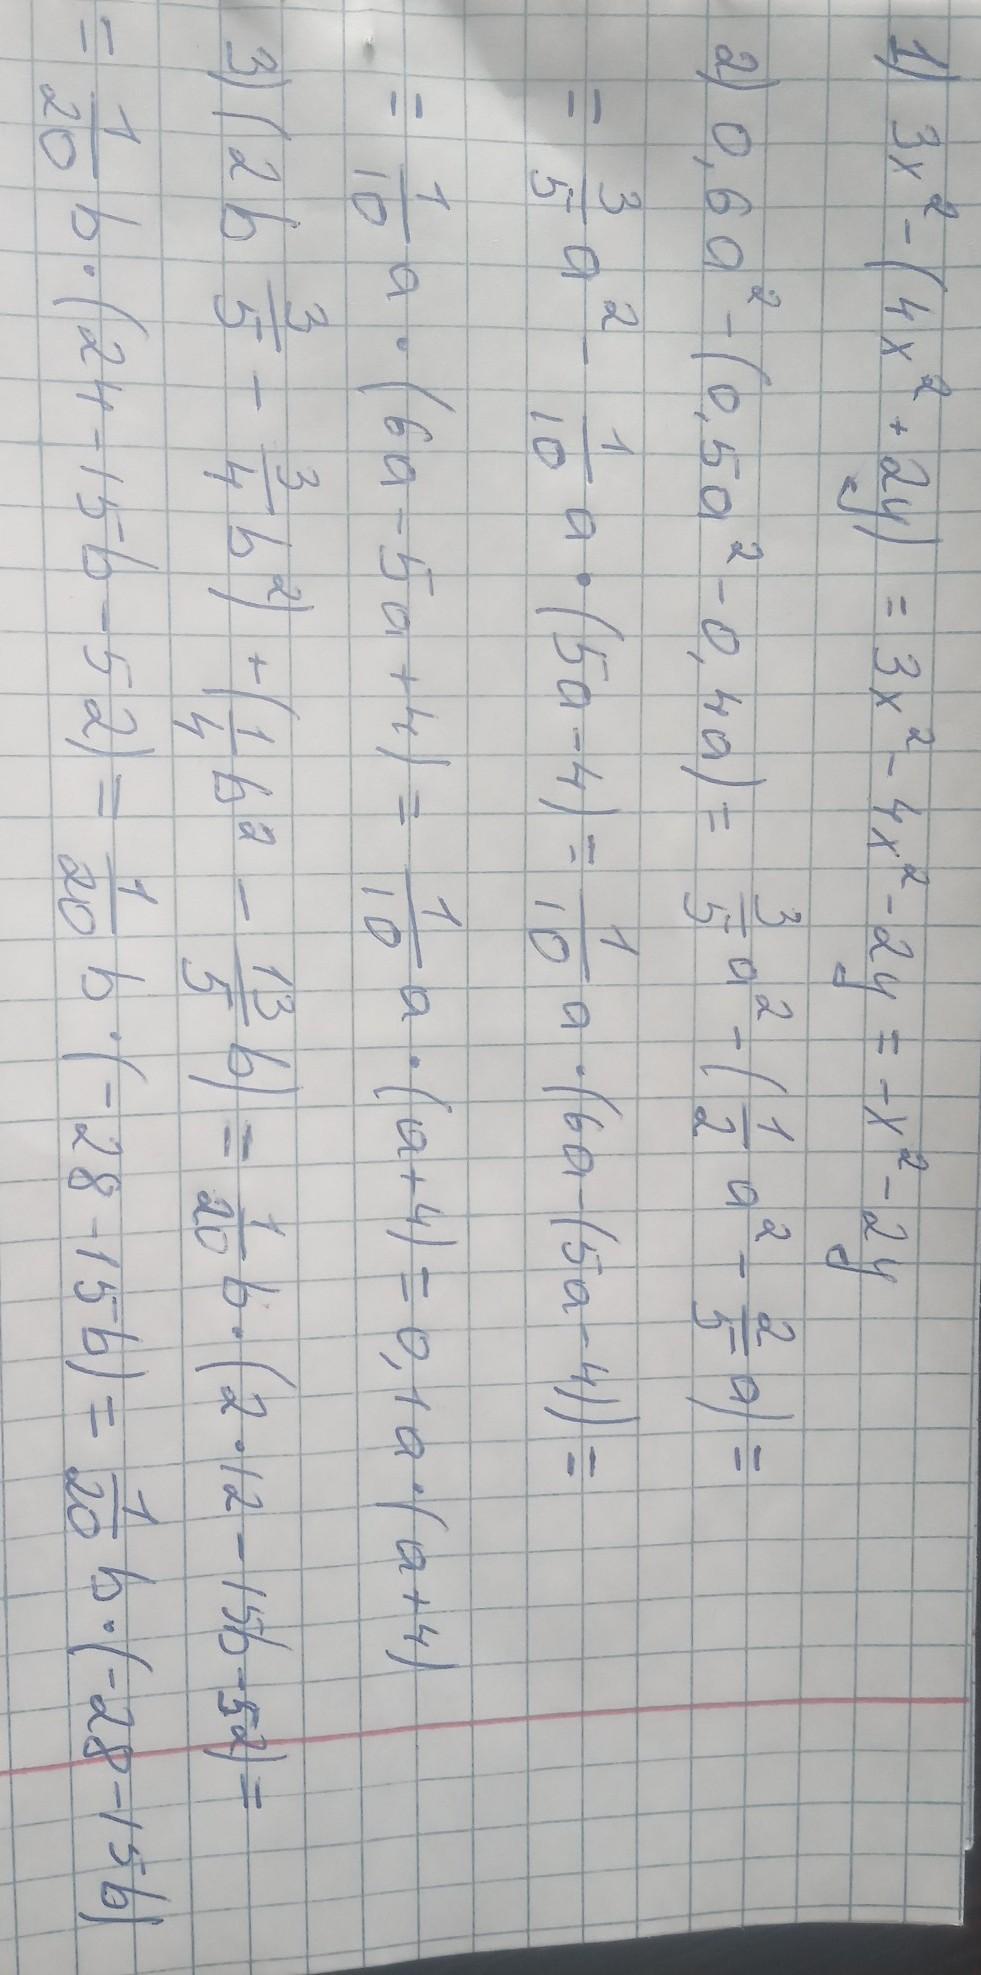 1) 3x² - (4x² + 2y) = 3x² - 4x² - 2y = -x² - 2y
2) 0,6a² - (0,5a² - 0,4a) = 3/5 a² - (1/2 a² - 2/5 a) =
= 3/5 a² - 1/10 a · (5a - 4) = 1/10 a · (6a - (5a - 4)) =
= 1/10 a · (6a - 5a + 4) = 1/10 a · (a + 4) = 0,1a · (a + 4)
3) (2b 3/5 - 3/4 b²) + (1/4 b² - 13/5 b) = 1/20 b · (2 · 12 - 15b - 52) =
= 1/20 b · (24 - 15b - 52) = 1/20 b · (-28 - 15b) = 1/20 b · (-28 - 15b)